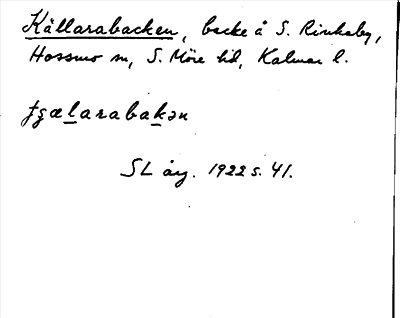 Källarabacken, backe å S. Rinkaby,
Hossmo sn, S. Möre hd, Kalmar l.
SL årg. 1922 s. 41.